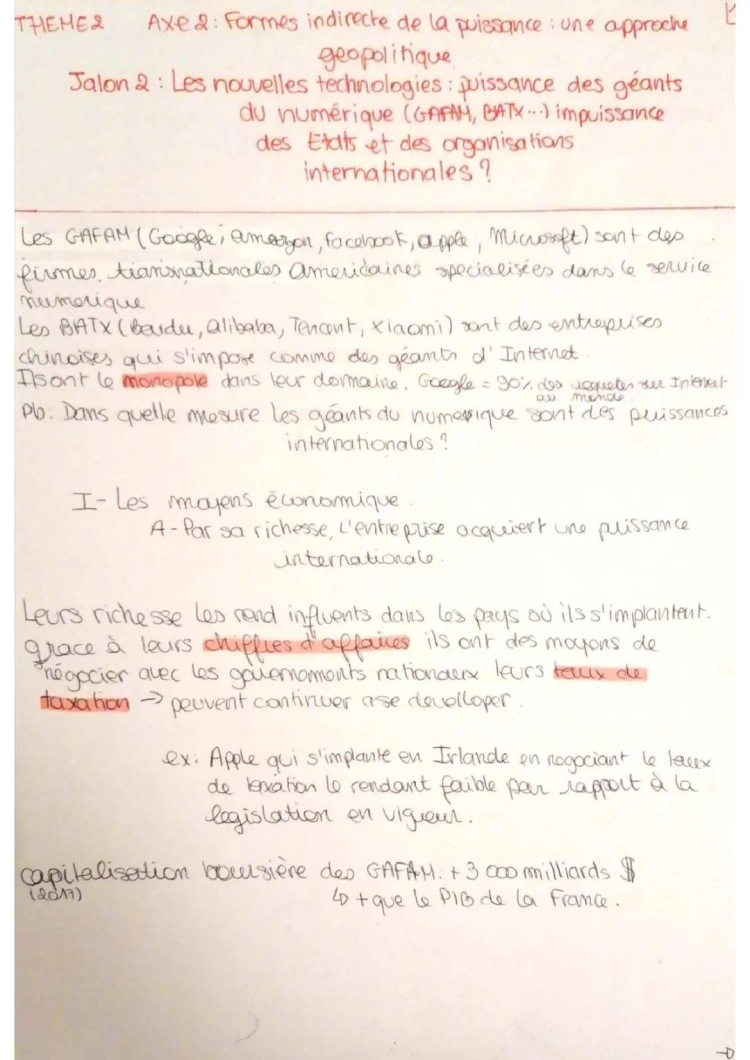 THEME 2 Axe 2 : Formes indirecte de la puissance : une approche
geopolitique
Jalon 2 : Les nouvelles technologies : puissance des géants
du numérique (GAFAM, BATX...) impuissance
des Etats et des organisations
internationales ?
Les GAFAM (Google, amazon, facebook, apple, Microsoft) sont des
firmes transnationales americaines specialisées dans le service
numerique
Les BATX (Baidu, alibaba, Tencent, Xiaomi) sont des entreprises
chinoises qui s'impose comme des géants d'Internet.
Ils ont le monopole dans leur domaine. Google = 90% des requetes sur Internet
au monde.
Pb : Dans quelle mesure les géants du numerique sont des puissances
internationales ?
I - Les moyens économique.
A - Par sa richesse, l'entreprise acquiert une puissance
internationale.
Leurs richesse les rend influents dans les pays où ils s'implantent.
grace à leurs chiffres d'affaires ils ont des moyens de
négocier avec les gouvernements nationaux leurs taux de
taxation → peuvent continuer a se developper.
ex : Apple qui s'implante en Irlande en negociant le taux
de taxation le rendant faible par rapport à la
legislation en vigueur.
capitalisation boursière des GAFAM : + 3 000 milliards $
(2017) ↳ + que le PIB de la France.
→